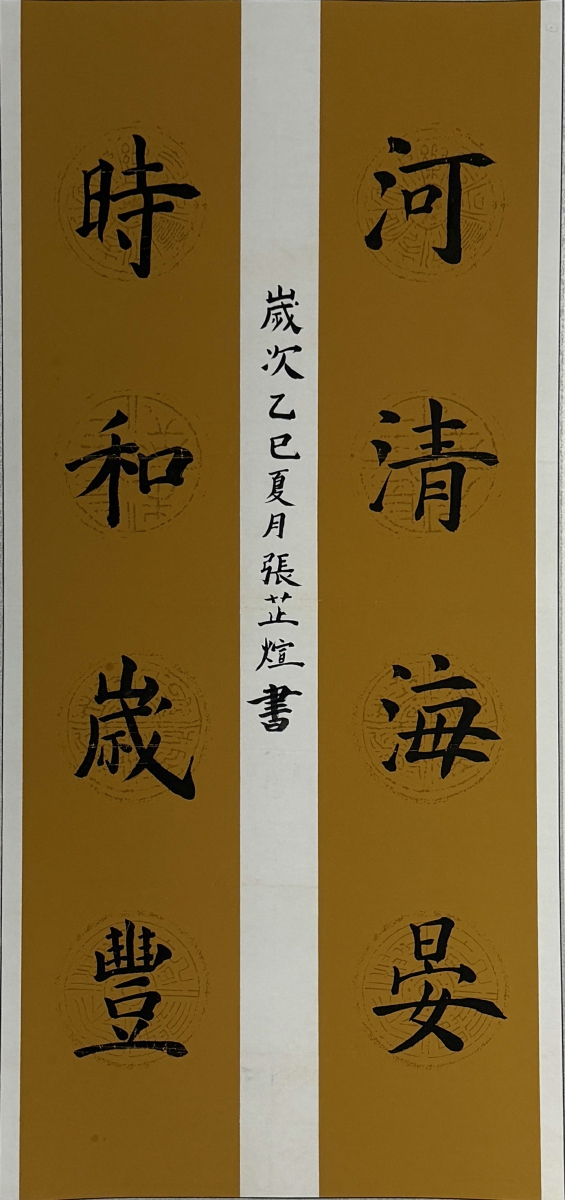 河清海晏
時和歲豐
歲次乙巳夏月張芷煊書